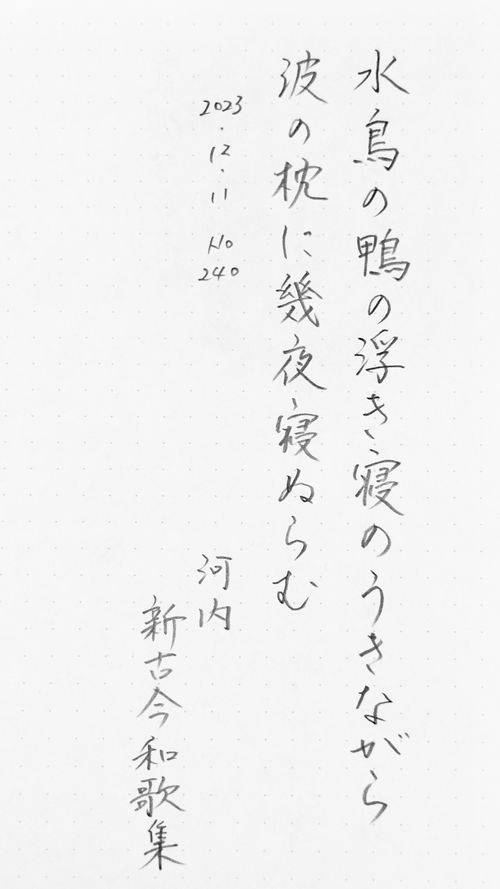 水鳥の鴨の浮き寝のうきながら
波の枕に幾夜寝ぬらむ
2023.12.11 No 240
河内
新古今和歌集